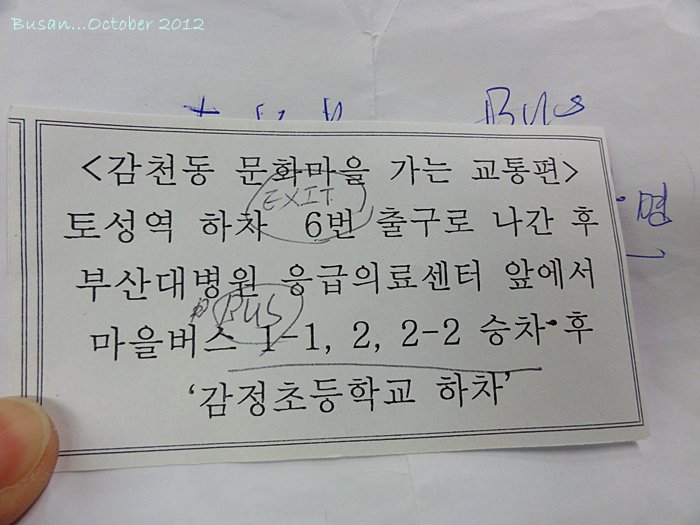 Busan...October 2012
Bus
명
<감천동 문화마을 가는 교통편>
EXIT
토성역 하차 6번 출구로 나간 후
부산대병원 응급의료센터 앞에서
BUS
마을버스 1-1, 2, 2-2 승차 후
'감정초등학교 하차'